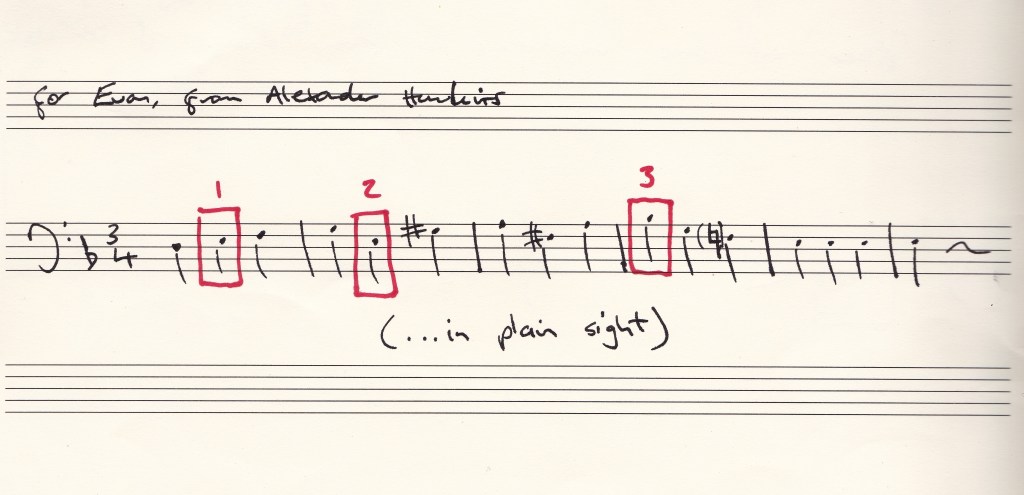 for Evan, from Alexander Hawkins
1 2 3
3
4
(...in plain sight)